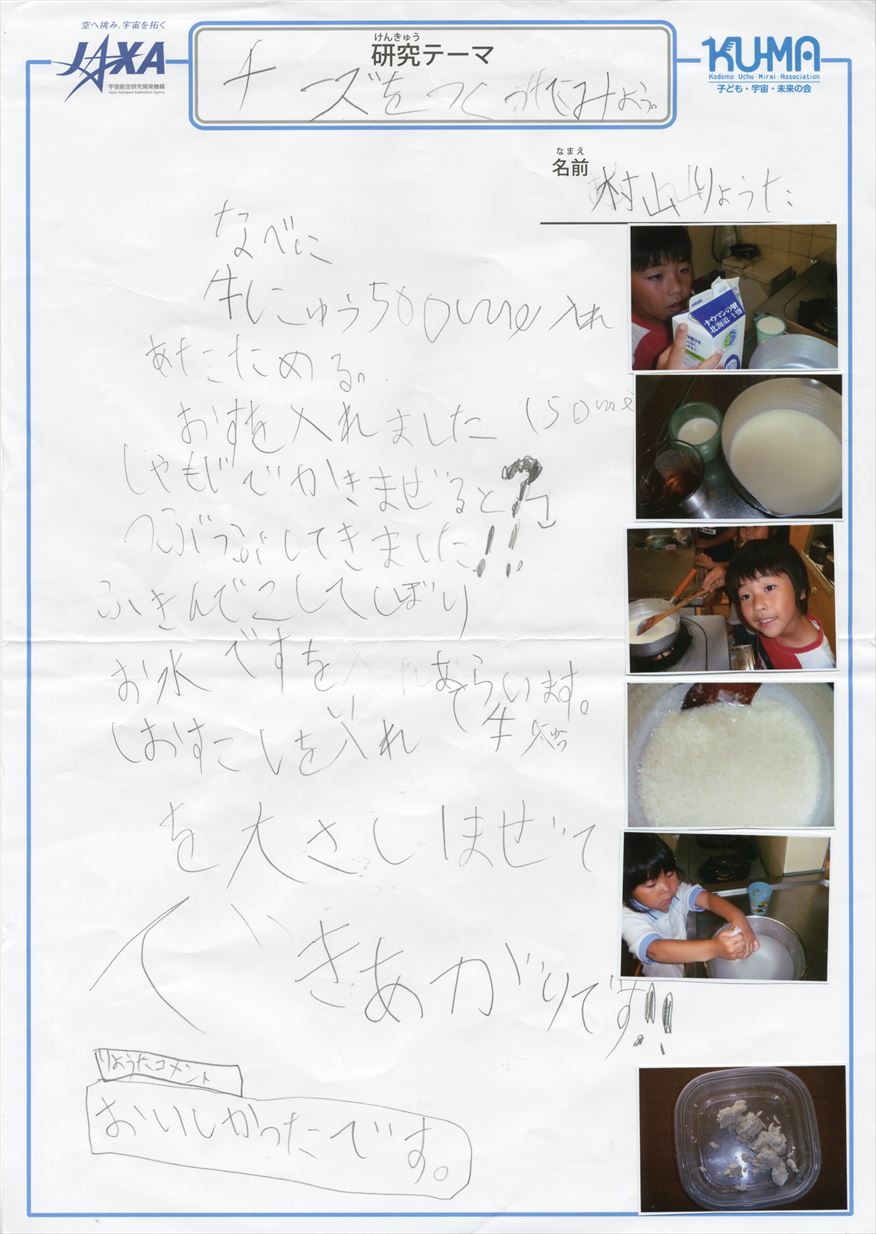 空へ挑み、宇宙を拓く
JAXA
宇宙航空研究開発機構
Japan Aerospace Exploration Agency
けんきゅう
研究テーマ
チーズをつくってみよう。
KU-MA
Kodomo Uchu Mirai Association
子ども・宇宙・未来の会
なまえ
名前
村山りょうた
なべに
牛にゅう500ml入れ
あたためる。
おすを入れました 150ml
しゃもじでかきまぜると?
つぶつぶしてきました!!
ふきんでこしてしぼり
お水ですを あらいます。
しおすこしを入れ 牛
を大さじ1まぜて
できあがりです!!
りょうたコメント
おいしかったです。
北海道十勝